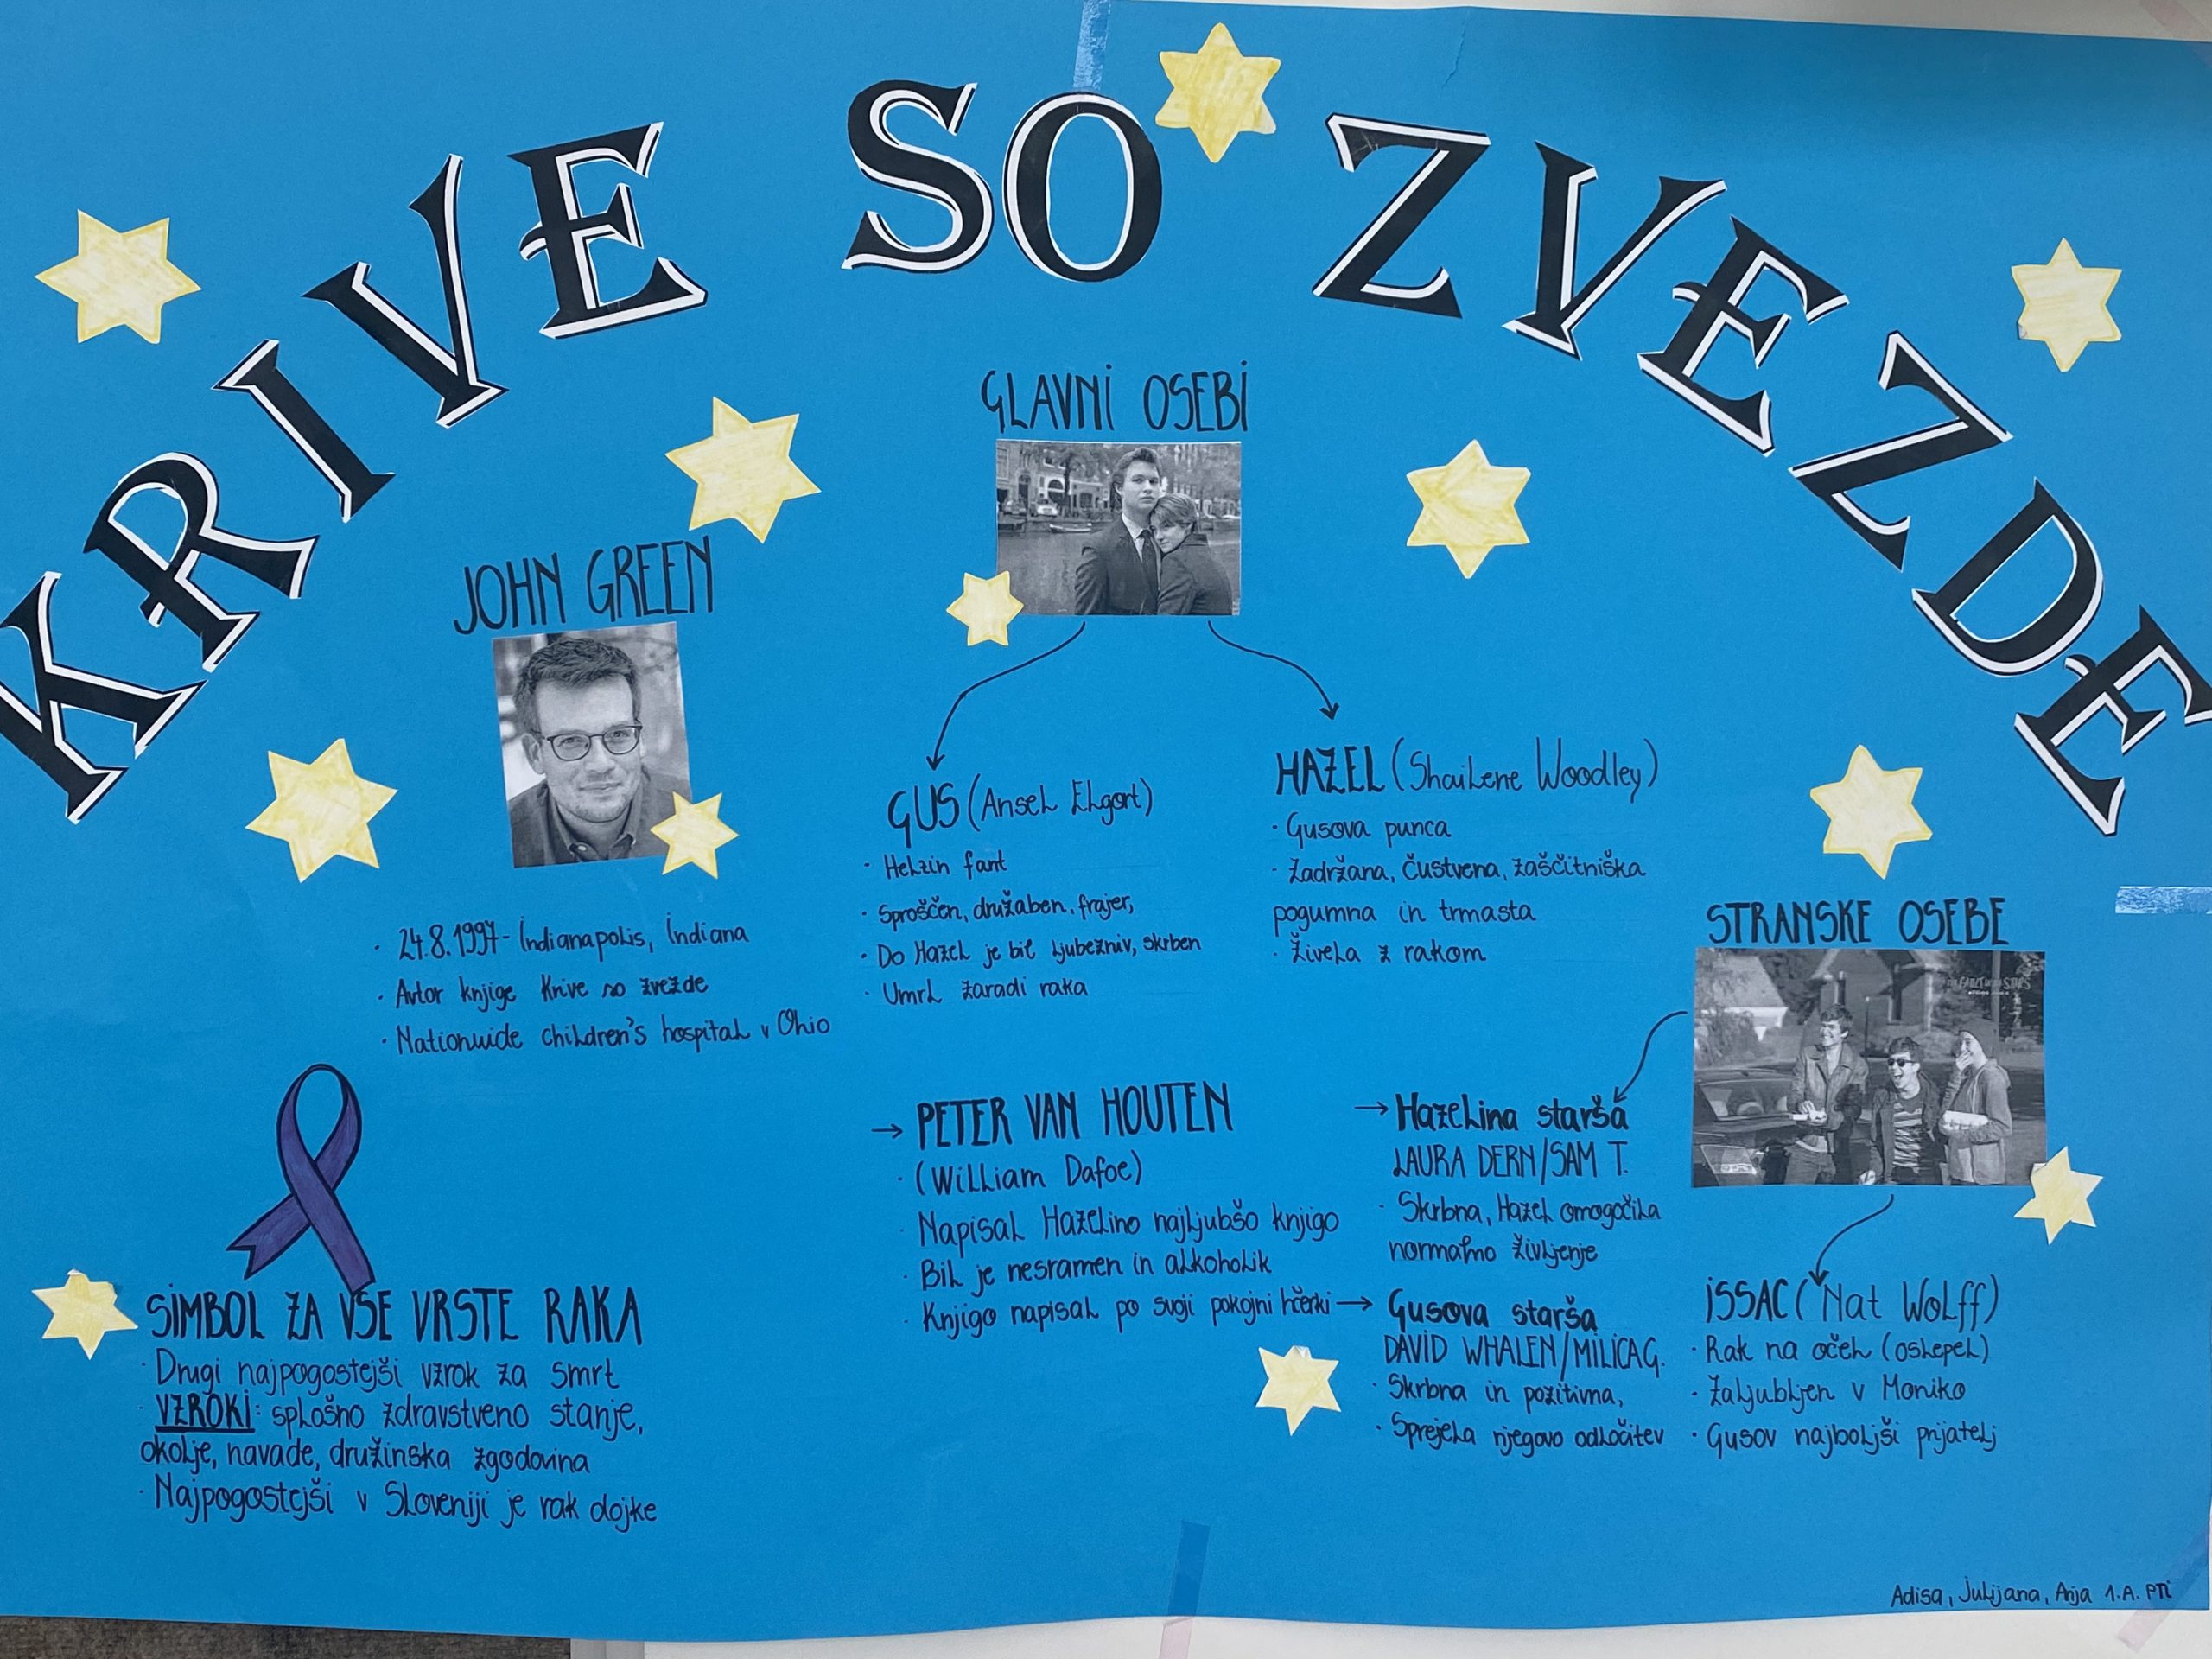 KRIVE SO ZVEZDE
GLAVNI OSEBI
JOHN GREEN
· 24.8.1997 - Indianapolis, Indiana
· Avtor knjige Krive so zvezde
· Nationwide children's hospital v Ohio
GUS (Ansel Elgort)
· Helzin fant
· Sproščen, družaben, frajer,
· Do Hazel je bil ljubezniv, skrben
· Umrl zaradi raka
HAZEL (Shailene Woodley)
· Gusova punca
· Zadržana, čustvena, zaščitniška
pogumna in trmasta
· Živela z rakom
STRANSKE OSEBE
→ PETER VAN HOUTEN
· (William Dafoe)
· Napisal Hazelino najljubšo knjigo
· Bil je nesramen in alkoholik
· Knjigo napisal po svoji pokojni hčerki
→ Hazelina starša
LAURA DERN/SAM T.
· Skrbna, Hazel omogočila
normalno življenje
→ Gusova starša
DAVID WHALEN/MILICA G.
· Skrbna in pozitivna,
· Sprejela njegovo odločitev
ISSAC (Nat Wolff)
· Rak na očeh (oslepel)
· Zaljubljen v Moniko
· Gusov najboljši prijatelj
SIMBOL ZA VSE VRSTE RAKA
· Drugi najpogostejši vzrok za smrt
· VZROKI: splošno zdravstveno stanje,
okolje, navade, družinska zgodovina
· Najpogostejši v Sloveniji je rak dojke
Adisa, Julijana, Anja 1.A. PTI